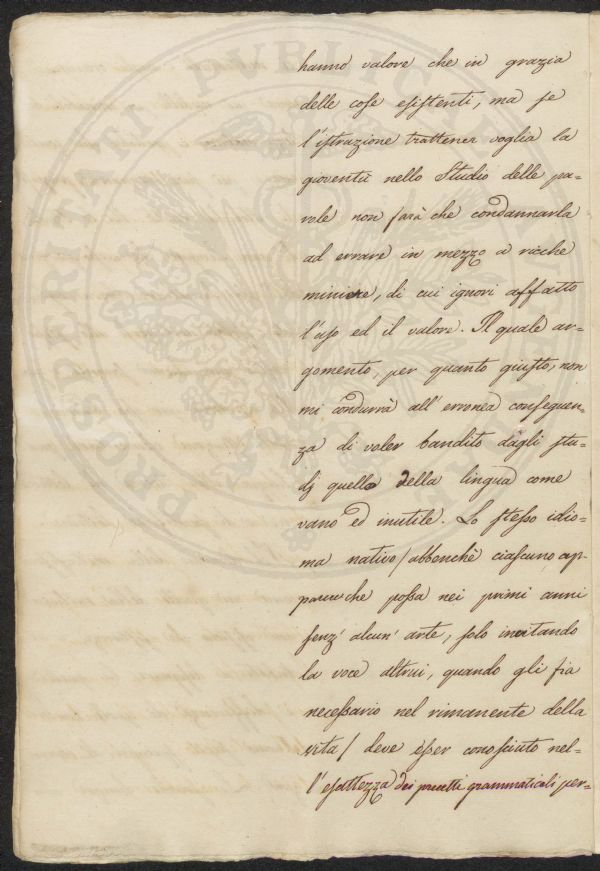 hanno valore che in grazia
delle cose esistenti, ma se
l'istruzione trattener voglia la
gioventù nello Studio delle pa=
role non farà che condannarla
ad errare in mezzo a ricche
miniere, di cui ignori affatto
l'uso ed il valore. Il quale ar=
gomento, per quanto giusto, non
mi condurrà all'erronea conseguen=
za di voler bandito dagli stu=
dj quello della lingua come
vano ed inutile. Lo stesso idio=
ma nativo / abbenchè ciascuno ap=
parecche possa nei primi anni
senz'alcun'arte, solo imitando
la voce altrui, quando gli fia
necessario nel rimanente della
vita / deve esser conosciuto nel=
l'esattezza dei precetti grammaticali per=
PROSPERITATI PVBLICAE